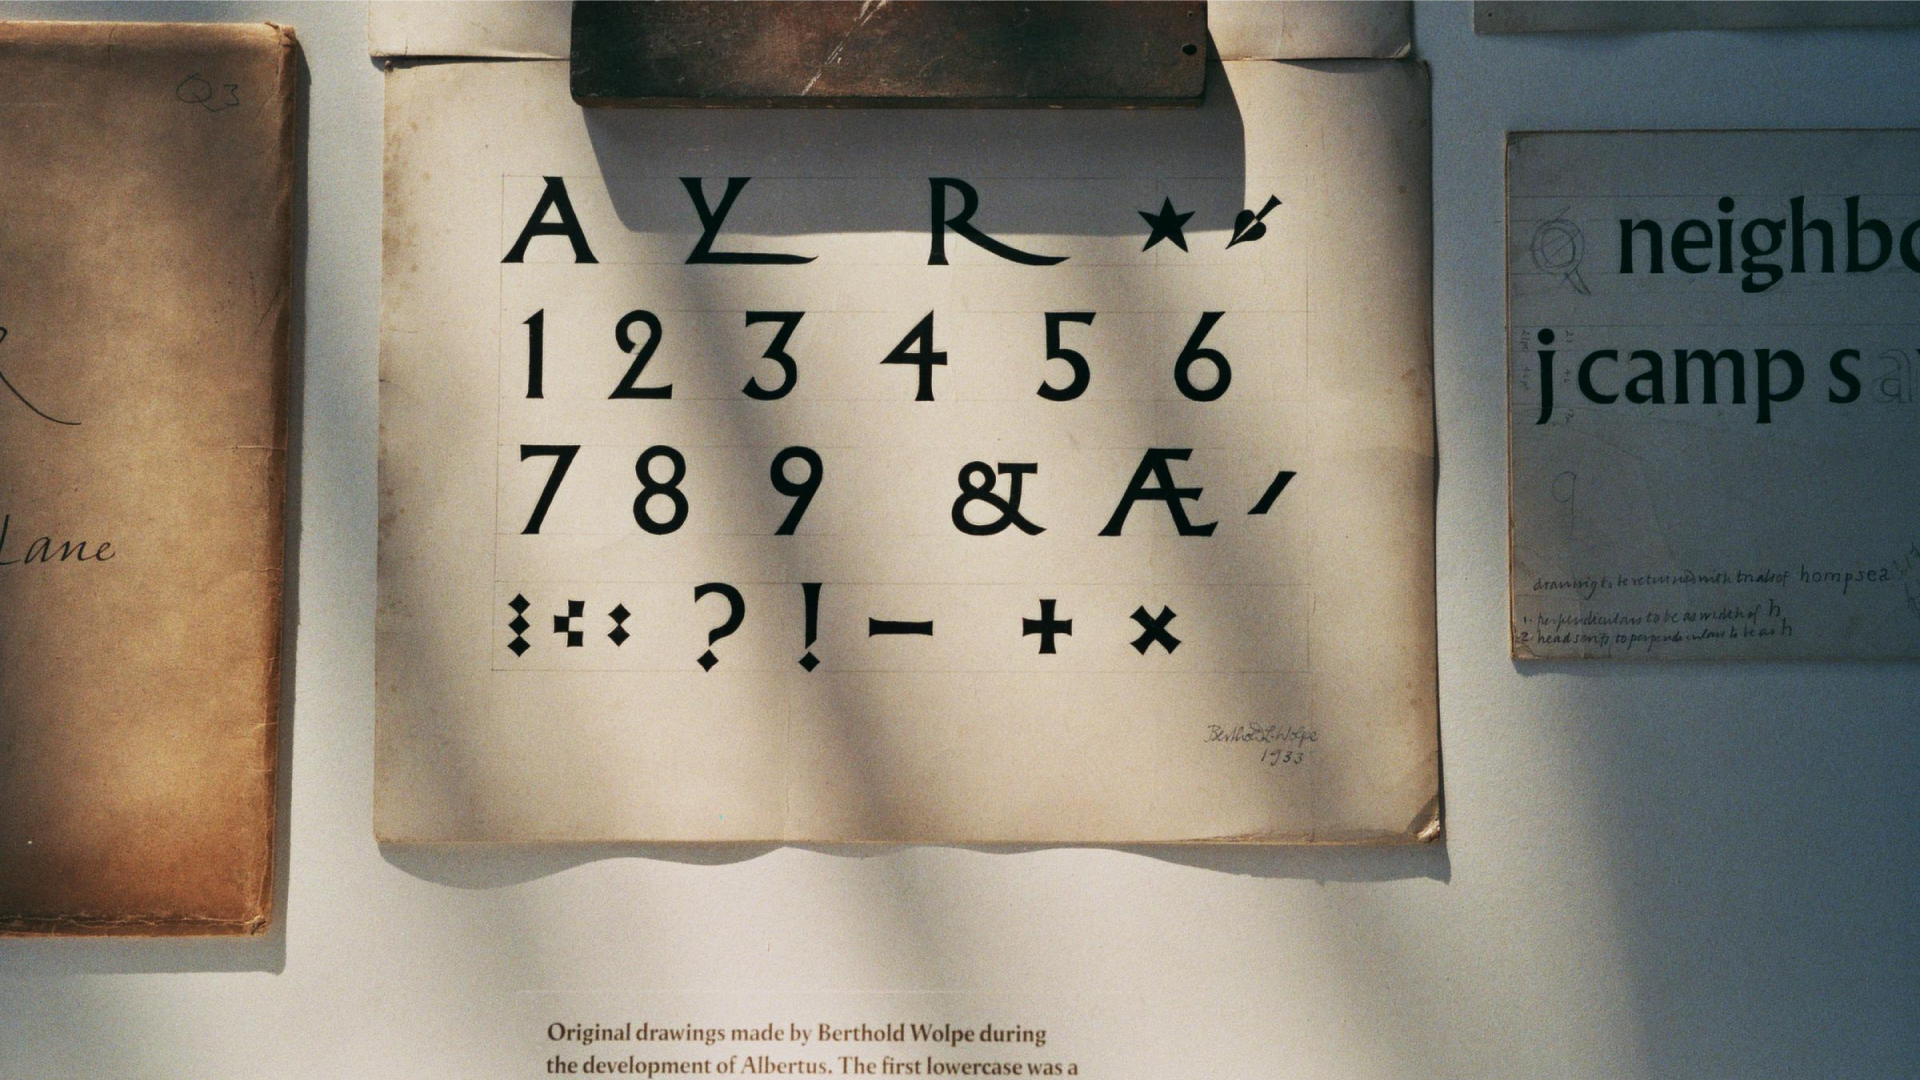 Q3
Lane
A Y R ★
1 2 3 4 5 6
7 8 9 & Æ
? ! — + ×
Berthold L. Wolpe
1933
neighbo
j camp s a
9
drawing to be returned with trials of hompsea
1. perpendiculars to be as width of h
2. head serifs to perpendiculars to be as h
Original drawings made by Berthold Wolpe during
the development of Albertus. The first lowercase was a